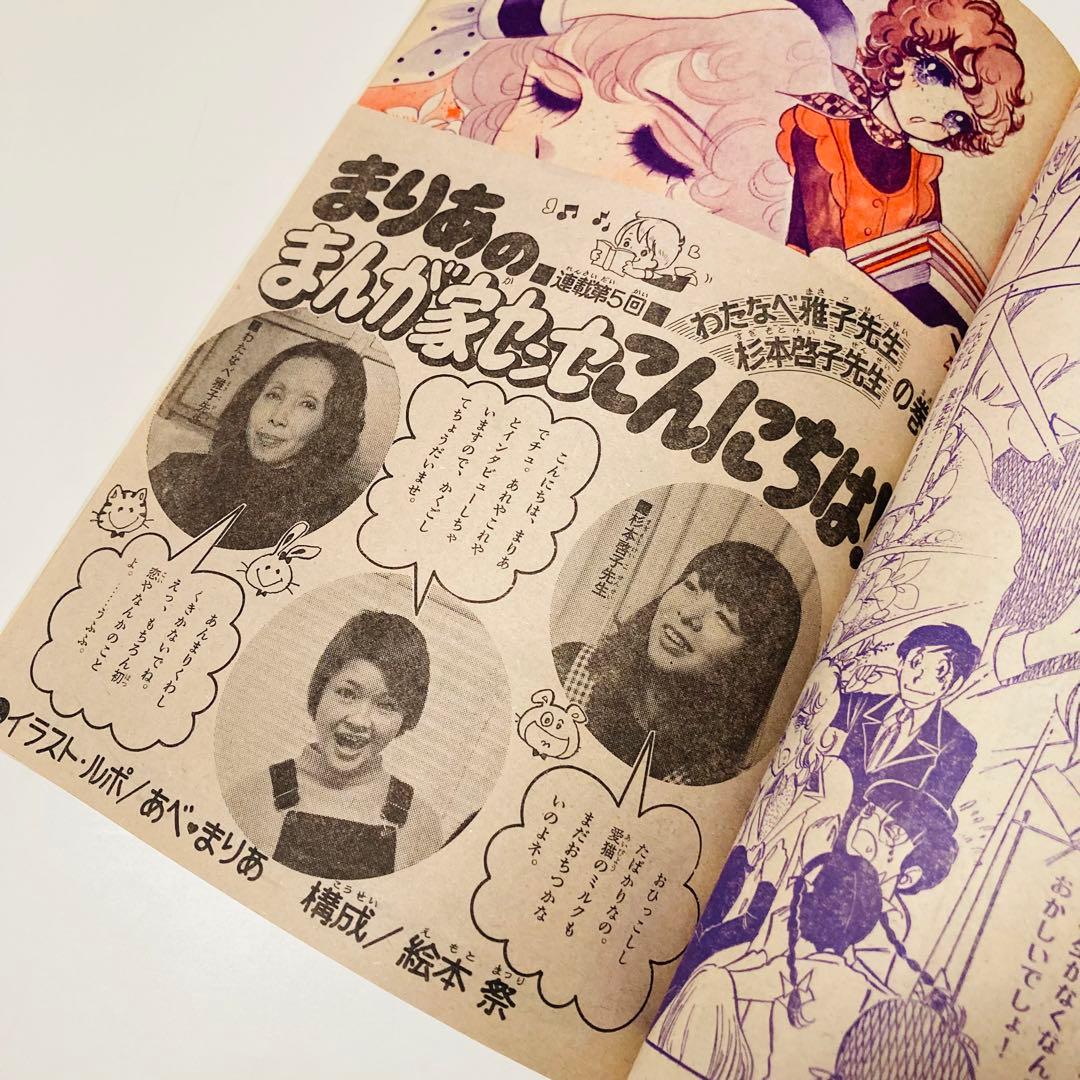 まりあの
まんが家センセこんにちは!
連載第5回
れんさいだい かい
わたなべ雅子先生
杉本啓子先生
の巻
■わたなべ雅子先生
こんにちは、まりあ
でチュ。あれやこれや
とインタビューしちゃ
いますので、かくごし
てちょうだいませ。
■杉本啓子先生
あんまりくわし
くきかないでね。
えっ、もちろん初
恋やなんかのこと
よ。……うふふ。
おひっこしし
たばかりなの。
愛猫のミルクも
まだおちつかな
いのよネ。
●イラスト・ルポ/あべ♥まりあ
構成/絵本 祭
こうせい えもと まつり
おかしいでしょ!